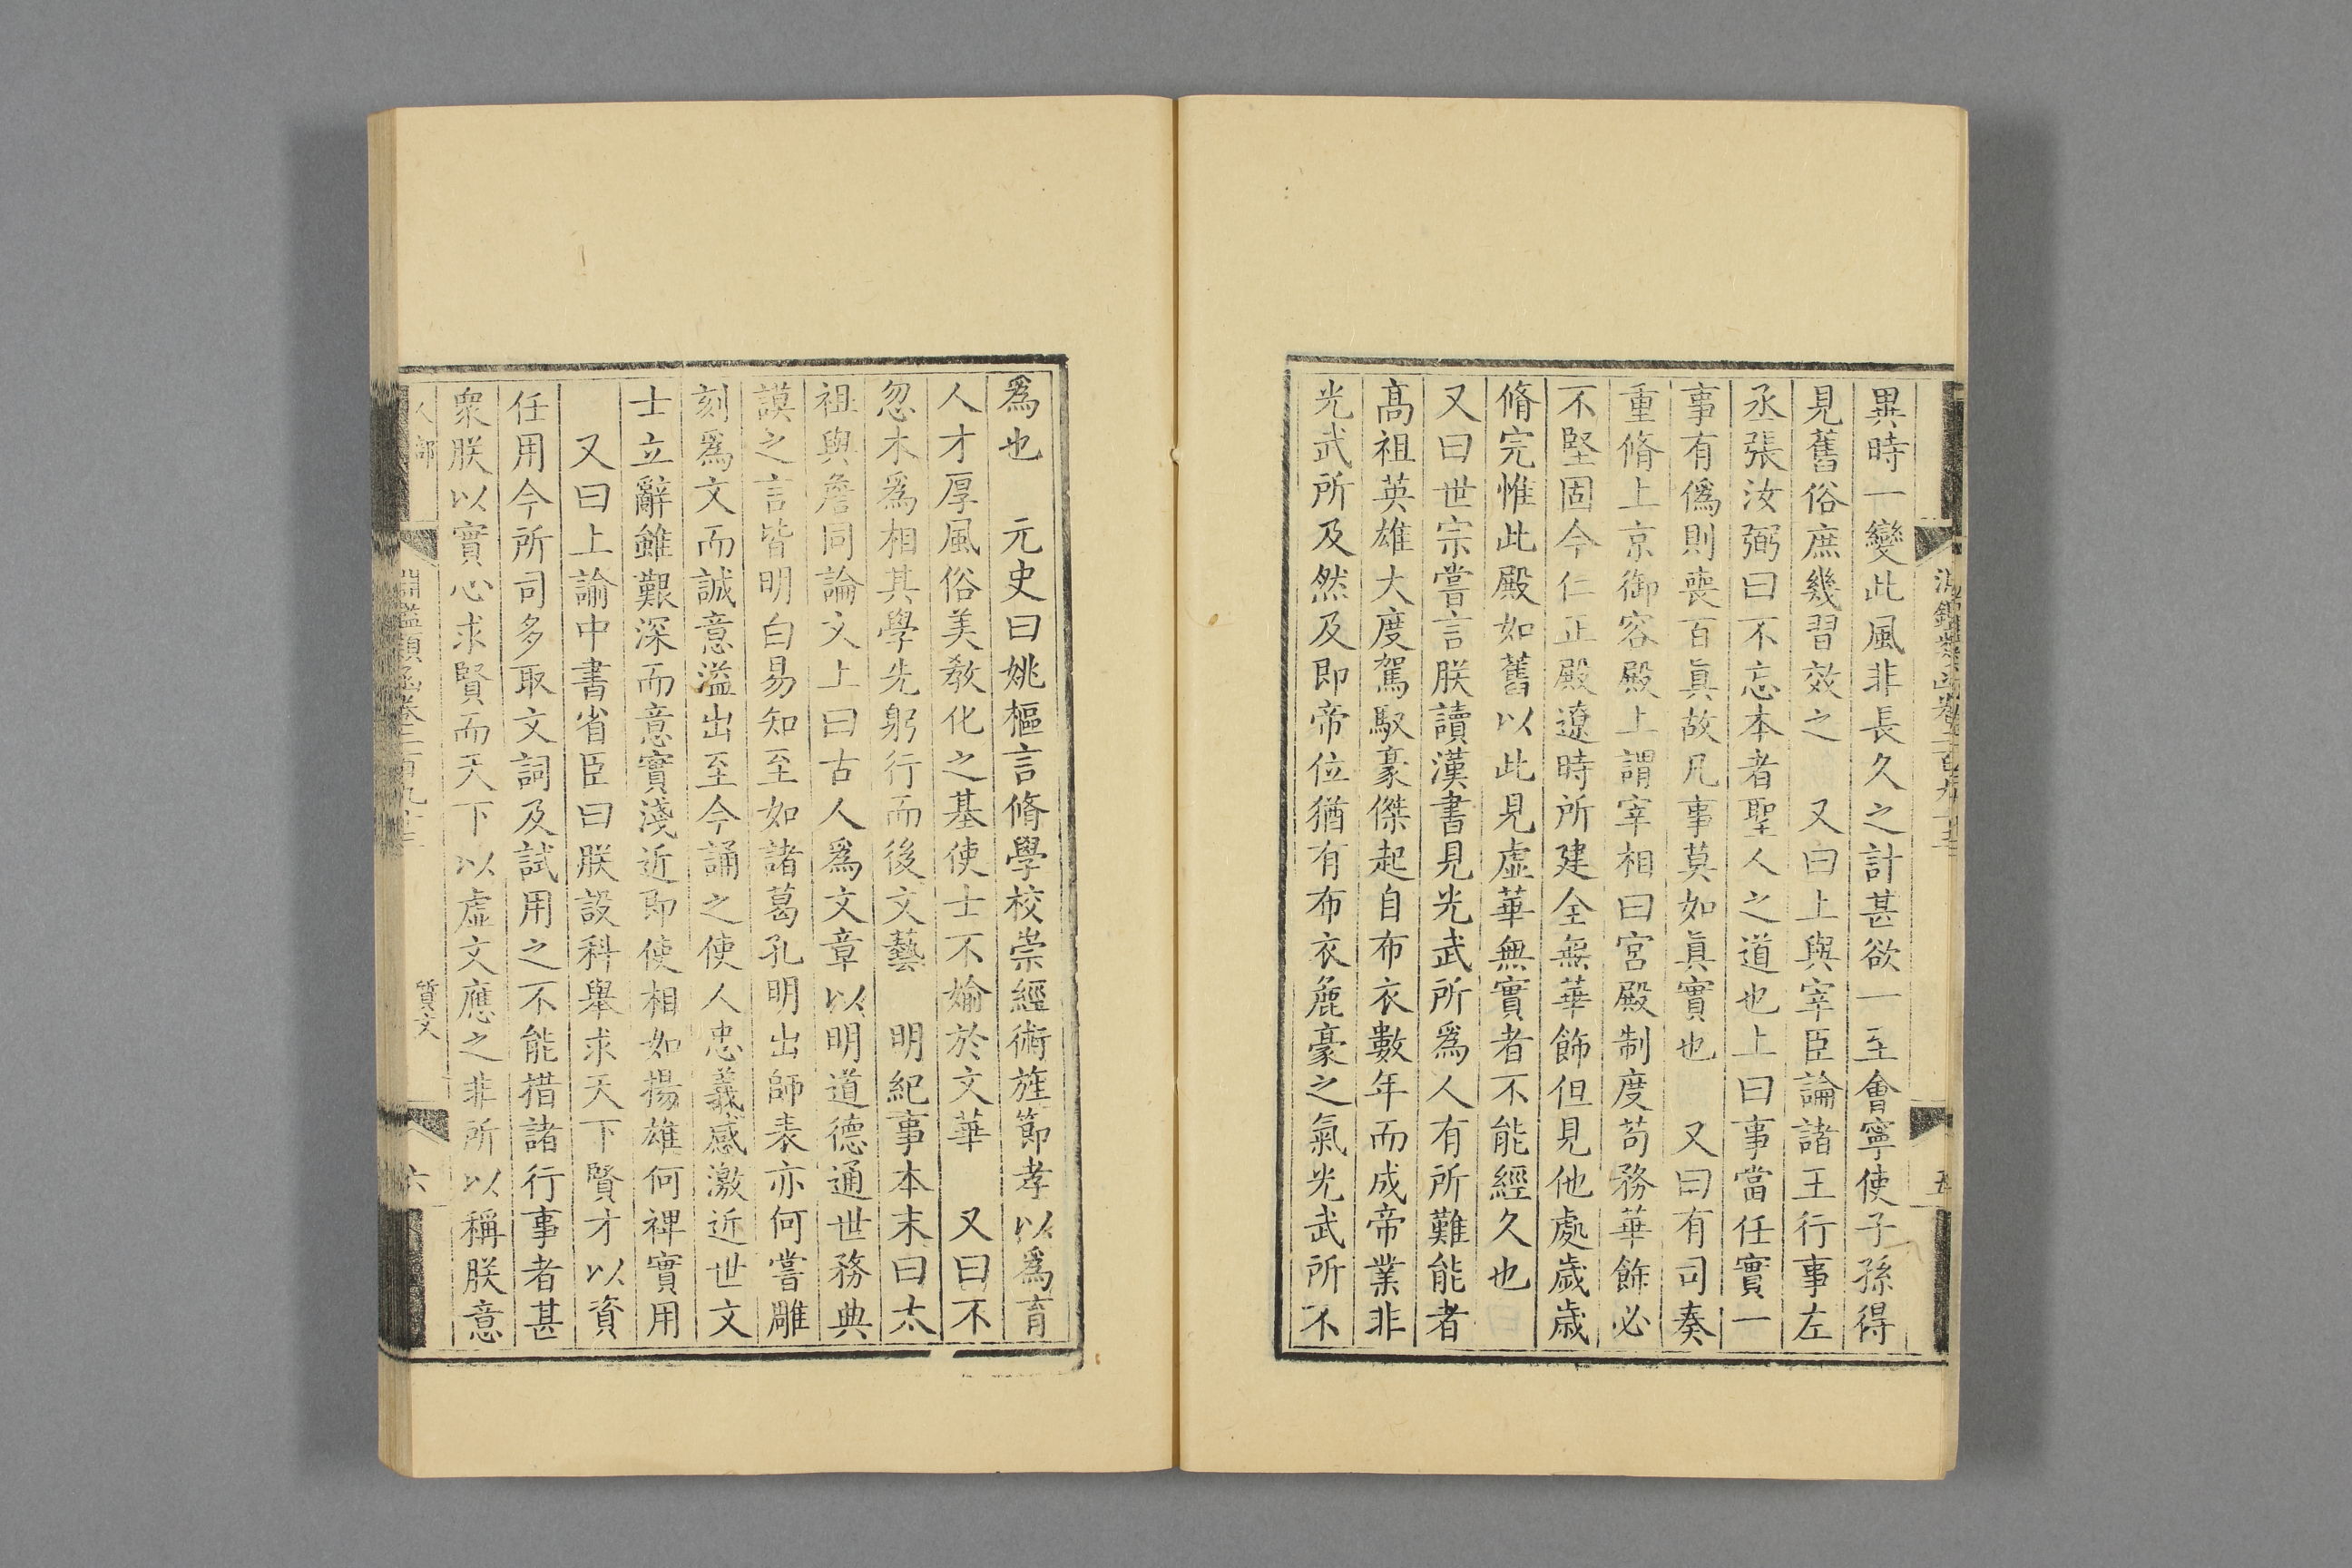 異時一變此風非長久之計甚欲一至會寧使子孫得
見舊俗庶幾習效之　又曰上與宰臣論諸王行事左
丞張汝弼曰不忘本者聖人之道也上曰事當任實一
事有僞則喪百眞故凡事莫如眞實也　又曰有司奏
重脩上京御容殿上謂宰相曰宮殿制度苟務華餙必
不堅固今仁正殿遼時所建全無華餙但見他處歲歲
脩完惟此殿如舊以此見虛華無實者不能經久也
又曰世宗嘗言朕讀漢書見光武所爲人有所難能者
髙祖英雄大度駕馭豪傑起自布衣數年而成帝業非
光武所及然及即帝位猶有布衣麄豪之氣光武所不
爲也　元史曰姚樞言脩學校崇經術旌節孝以爲育
人才厚風俗美敎化之基使士不媮於文華　又曰不
忽木爲相其學先躬行而後文藝　明紀事本末曰太
祖與詹同論文上曰古人爲文章以明道德通世務典
謨之言皆明白易知至如諸葛孔明出師表亦何嘗雕
刻爲文而誠意溢出至今誦之使人忠義感激近世文
士立辭雖艱深而意實淺近即使相如揚雄何裨實用
又曰上諭中書省臣曰朕設科舉求天下賢才以資
任用今所司多取文詞及試用之不能措諸行事者甚
衆朕以實心求賢而天下以虛文應之非所以稱朕意
人部
淵鑑類函卷二百九十三
質文
六